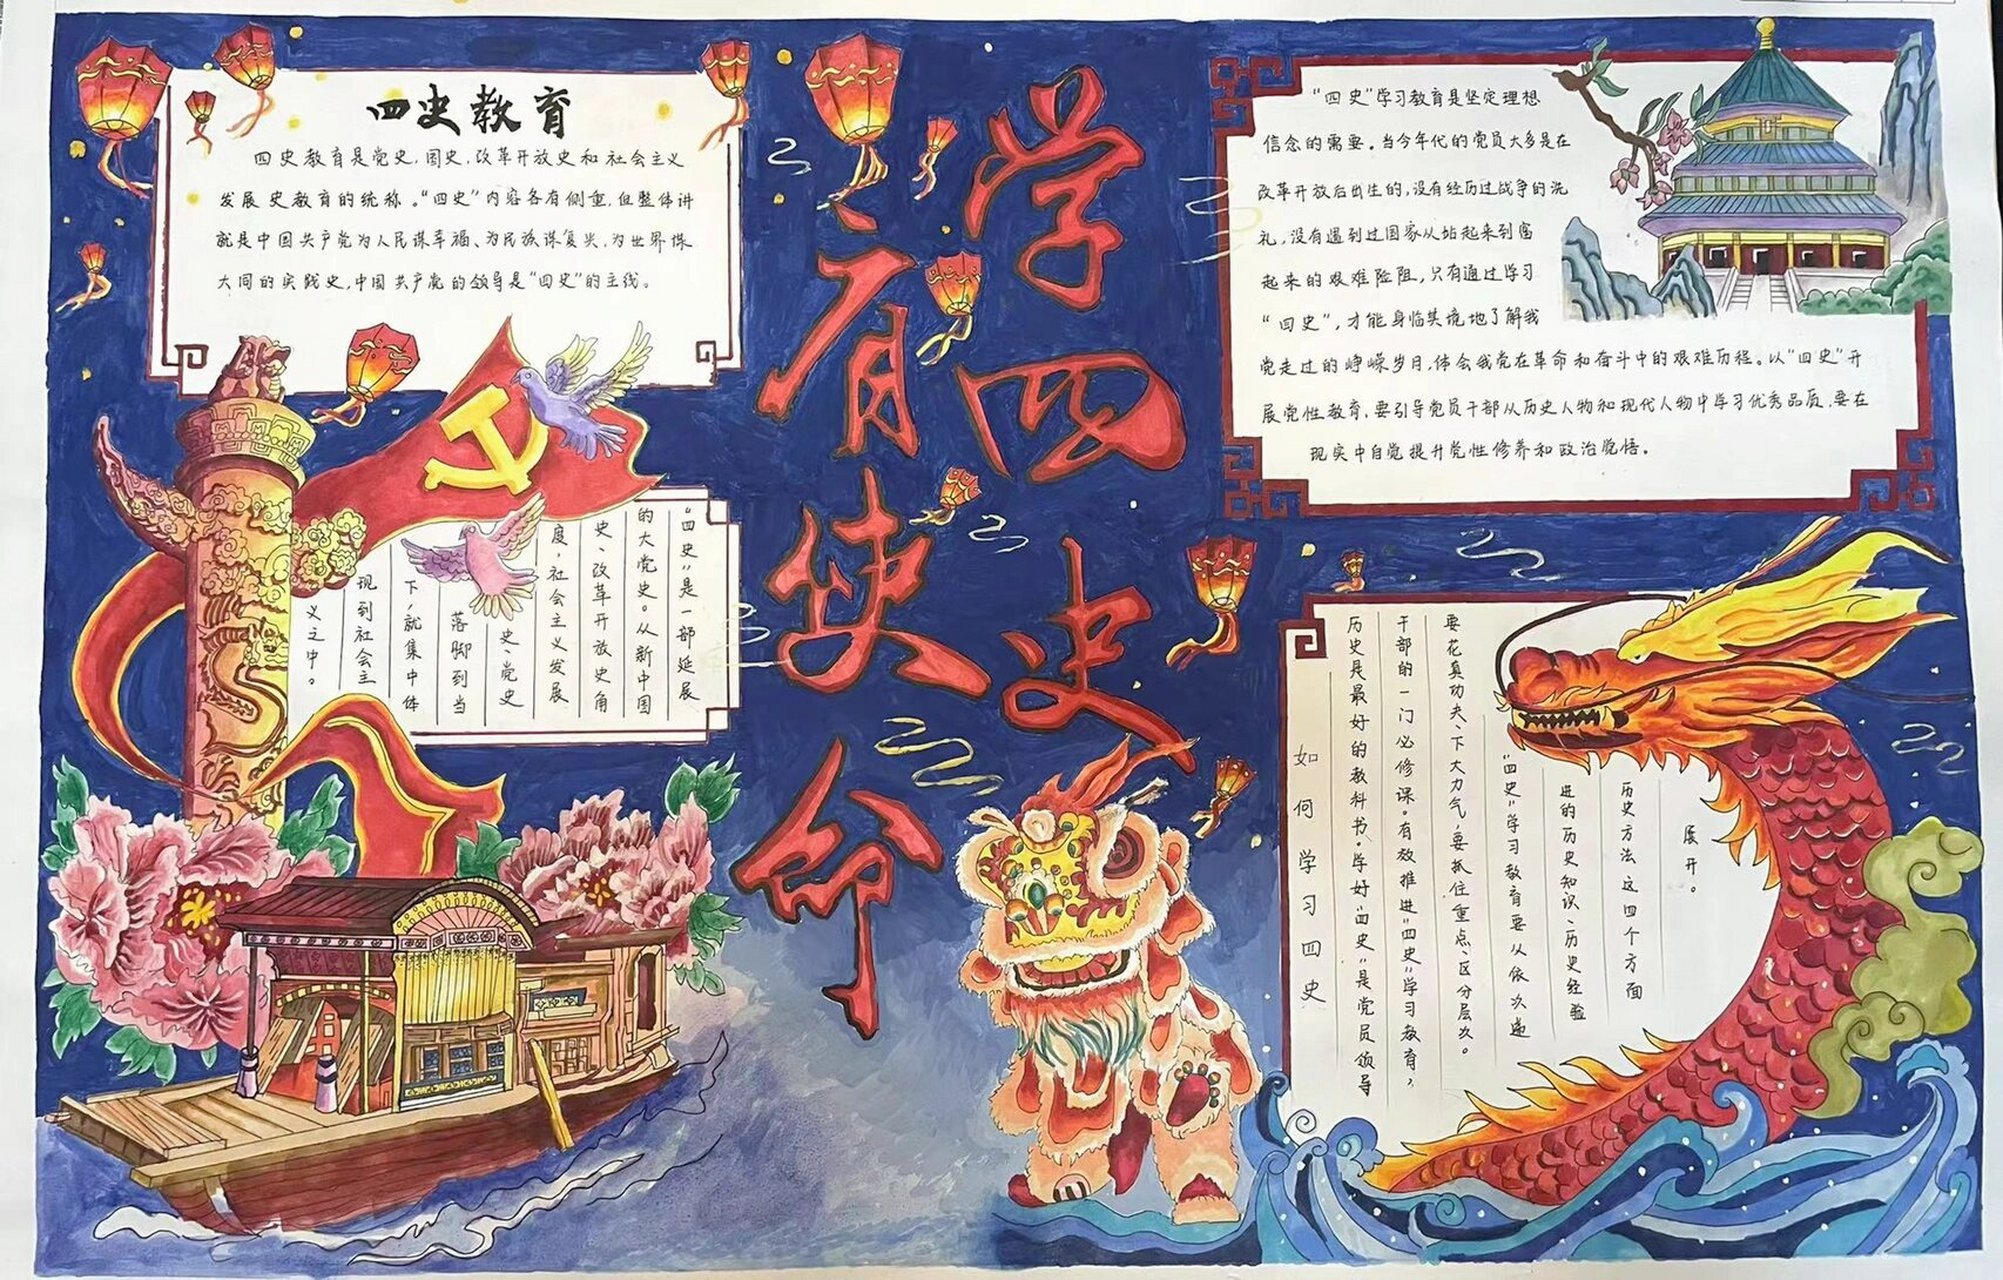 四史教育
四史教育是党史,国史,改革开放史和社会主义
发展史教育的统称。“四史”内容各有侧重,但整体讲
就是中国共产党为人民谋幸福、为民族谋复兴,为世界谋
大同的实践史,中国共产党的领导是“四史”的主线。
“四史”是一部延展
的大党史。从新中国
史、改革开放史角
度,社会主义发展
史、党史
落脚到当
下,就集中体
现到社会主
义之中。
学四史
有使命
“四史”学习教育是坚定理想
信念的需要。当今年代的党员大多是在
改革开放后出生的,没有经历过战争的洗
礼,没有遇到过国家从站起来到富
起来的艰难险阻,只有通过学习
“四史”,才能身临其境地了解我
党走过的峥嵘岁月,体会我党在革命和奋斗中的艰难历程。以“四史”开
展党性教育,要引导党员干部从历史人物和现代人物中学习优秀品质,要在
现实中自觉提升党性修养和政治觉悟。
如何学习四史
历史是最好的教科书。学好“四史”是党员领导
干部的一门必修课。有效推进“四史”学习教育,
要花真功夫、下大力气,要抓住重点、区分层次。
“四史”学习教育要从依次递
进的历史知识、历史经验
历史方法这四个方面
展开。